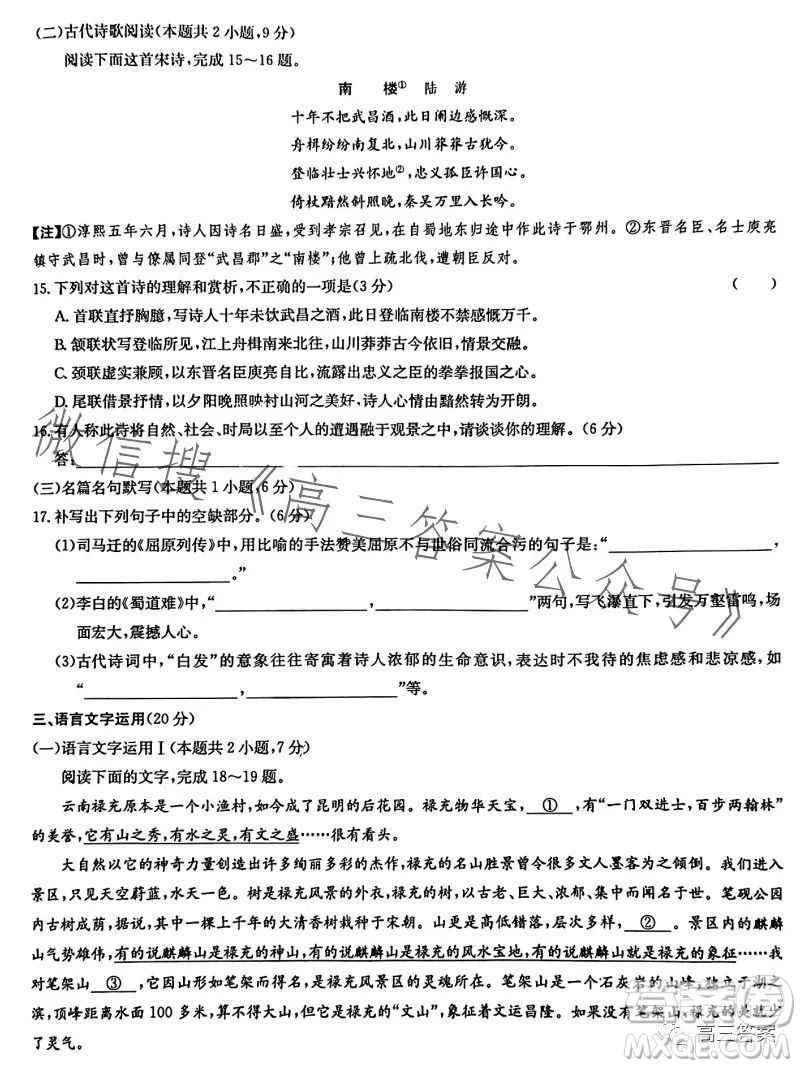 (二)古代诗歌阅读(本题共2小题,9分)
阅读下面这首宋诗,完成15~16题。
南 楼① 陆 游
十年不把武昌酒,此日阑边感慨深。
舟楫纷纷南复北,山川莽莽古犹今。
登临壮士兴怀地②,忠义孤臣许国心。
倚杖黯然斜照晚,秦吴万里入长吟。
【注】①淳熙五年六月,诗人因诗名日盛,受到孝宗召见,在自蜀地东归途中作此诗于鄂州。②东晋名臣、名士庾亮
镇守武昌时,曾与僚属同登“武昌郡”之“南楼”;他曾上疏北伐,遭朝臣反对。
15.下列对这首诗的理解和赏析,不正确的一项是(3分) ( )
A.首联直抒胸臆,写诗人十年未饮武昌之酒,此日登临南楼不禁感慨万千。
B.颔联状写登临所见,江上舟楫南来北往,山川莽莽古今依旧,情景交融。
C.颈联虚实兼顾,以东晋名臣庾亮,流露出忠义之臣的拳拳报国之心。
D.尾联借景抒情,以夕阳晚照映衬山河之美好,诗人心情由黯然转为开朗。
16.有人称此诗将自然、社会、时局以至个人的遭遇融于观景之中,请谈谈你的理解。(6分)
答:
(三)名篇名句默写(本题共1小题,6分)
17.补写出下列句子中的空缺部分。(6分)
(1)司马迁的《屈原列传》中,用比喻的手法赞美屈原不与世俗同流合污的句子是:“____________,
____________。”
(2)李白的《蜀道难》中,“____________,____________”两句,写飞瀑直下,引发万壑雷鸣,场
面宏大,震撼人心。
(3)古代诗词中,“白发”的意象往往寄寓着诗人浓郁的生命意识,表达时不我待的焦虑感和悲凉感,如
“____________,____________”。
三、语言文字运用(20分)
(一)语言文字运用Ⅰ(本题共2小题,7分)
阅读下面的文字,完成18~19题。
云南禄充原本是一个小渔村,如今成了昆明的后花园。禄充物华天宝, ① ,有“一门双进士,百步两翰林”
的美誉,它有山之秀,有水之灵,有文之盛……很有看头。
大自然以它的神奇力量创造出许多绚丽多彩的杰作,禄充的名山胜景曾令很多文人墨客为之倾倒。我们进入
景区,只见天空蔚蓝,水天一色。树是禄充风景的外衣,以古老、巨大、浓郁、多样而闻名于省内外。笔砚公园
内古树成荫,据说这里上千年的大清香树或种于宋朝。山更是高低错落,层次多样, ② 。景区内的麒麟
山气势雄伟,有的说麒麟山是禄充的神山,有的说麒麟山是禄充的风水宝地,有的说麒麟山是禄充的象征……我
对笔架山 ③ ,它因山形如笔架而得名,是禄充风景区的灵魂所在。笔架山是一个石灰岩的山峰,突兀于湖之
滨,顶峰距离水面100多米,但它是禄充的“文山”,象征着文运昌隆。如果没有笔架山,禄充的美就少
了灵气。
微信搜《高三答案公众号》
高三答案
答案圈
MXQE.COM